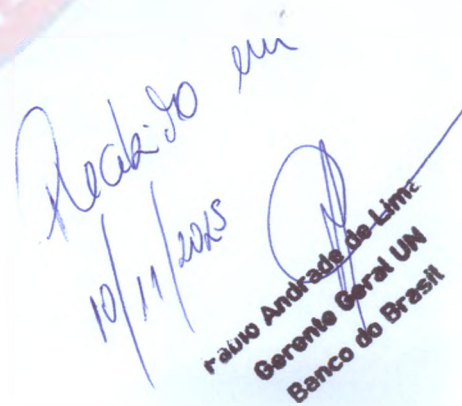 Recebido em
10/11/2025
Fabio Andrade de Lima
Gerente Geral UN
Banco do Brasil